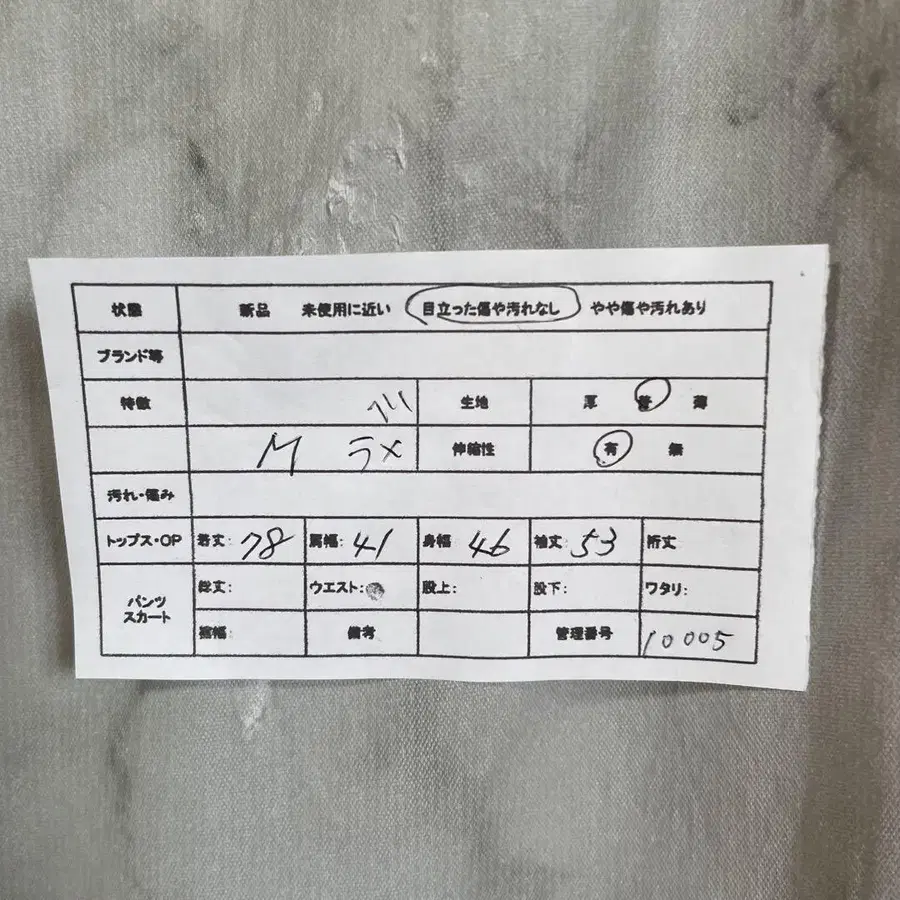 状態 新品 未使用に近い 目立った傷や汚れなし やや傷や汚れあり
ブランド等
特徴 生地 厚 普 薄
M ラメ 伸縮性 有 無
汚れ・傷み
トップス・OP 着丈: 78 肩幅: 41 身幅 46 袖丈: 53 裄丈
パンツ スカート 総丈: ウエスト: 股上: 股下: ワタリ:
裾幅: 備考 管理番号 10005